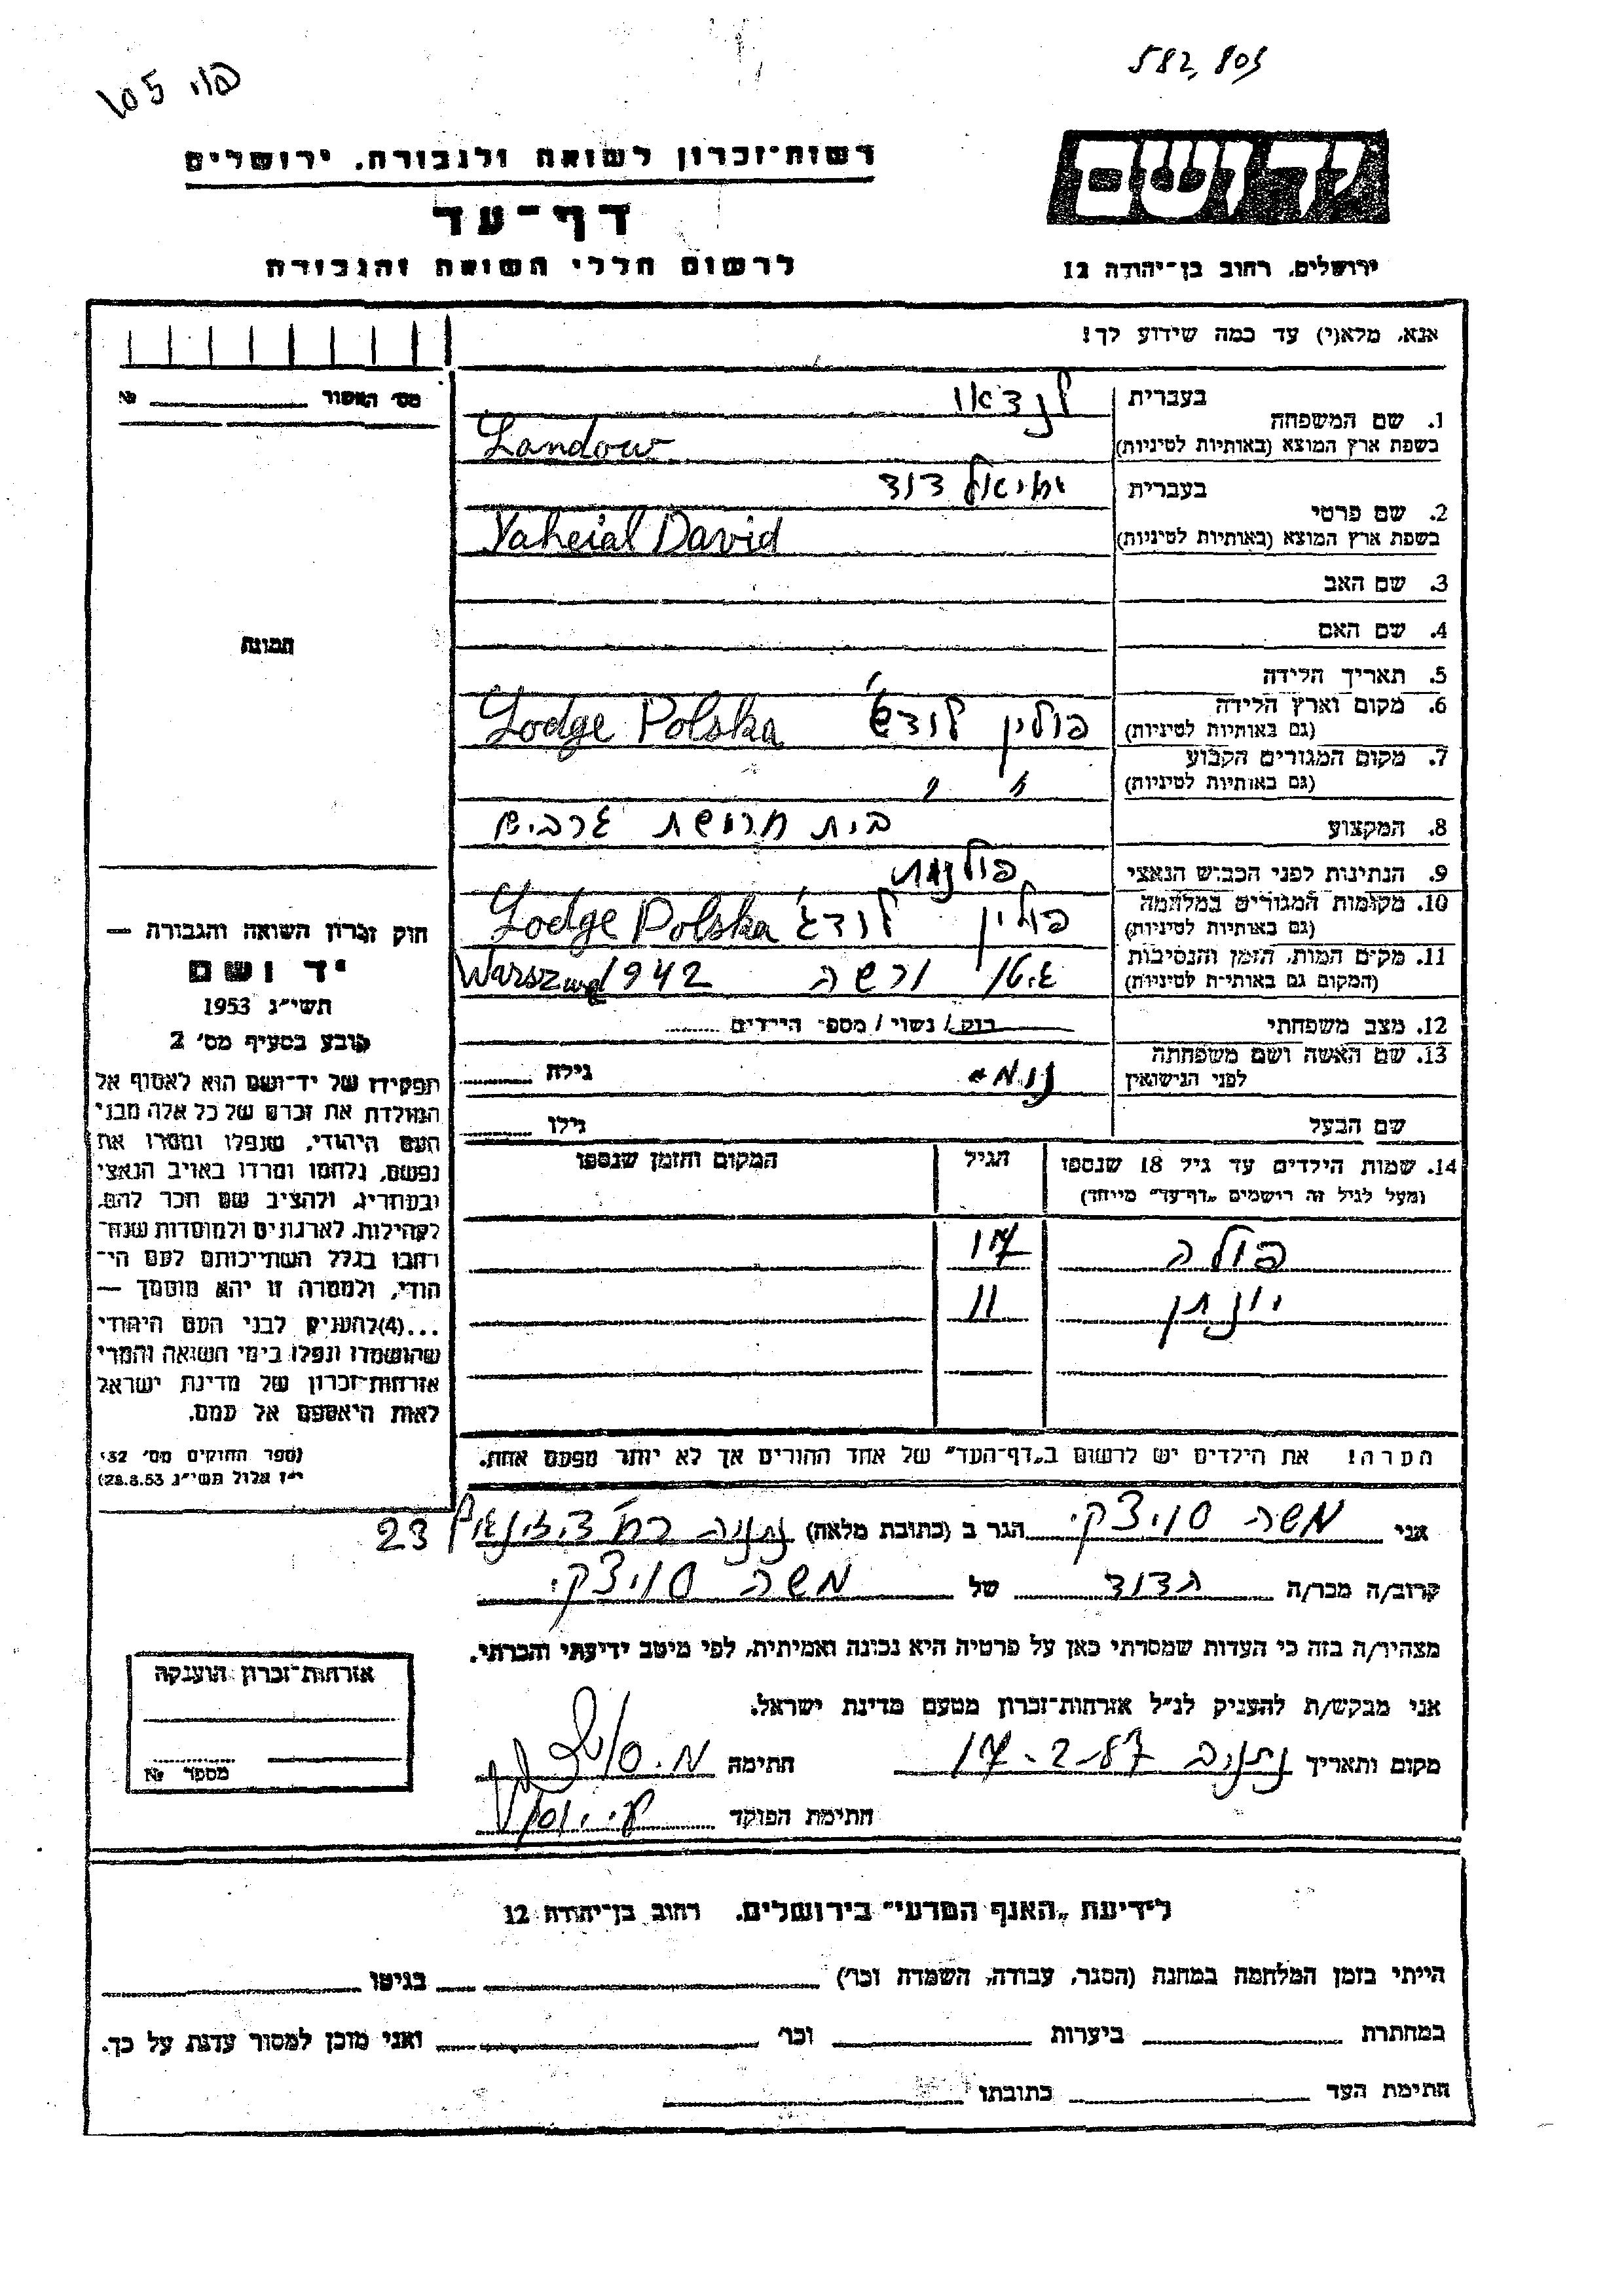 582,803
רשות-זכרון לשואה ולגבורה. ירושלים
דף-עד
לרשום חללי השואה והגבורה
יד ושם
ירושלים. רחוב בן-יהודה 12
אנא, מלא(י) עד כמה שידוע לך!
מס׳ האשור № 
1. שם המשפחה בעברית לנדאו
בשפת ארץ המוצא (באותיות לטיניות) Landow
2. שם פרטי בעברית יחיאל דוד
בשפת ארץ המוצא (באותיות לטיניות) Yaheial David
3. שם האב
4. שם האם
תמונה
5. תאריך הלידה
6. מקום וארץ הלידה
(גם באותיות לטיניות) פולין לודש׳ Lodge Polska
7. מקום המגורים הקבוע
(גם באותיות לטיניות) " "
8. המקצוע בית חרושת גרבים
9. הנתינות לפני הכבוש הנאצי פולנית
10. מקומות המגורים במלחמה
(גם באותיות לטיניות) פולין לודג׳ Lodge Polska
11. מקום המות, הזמן והנסיבות
(המקום גם באותיות לטיניות) גיטו ורשה 1942 Warszawa
12. מצב משפחתי רוק/נשוי/מספר הילדים
13. שם האשה ושם משפחתה
לפני הנישואין נחמה גילה
שם הבעל גילו
14. שמות הילדים עד גיל 18 שנספו הגיל המקום והזמן שנספו
(מעל לגיל זה רושמים „דף-עד״ מיוחד)
פולה 17
יונתן 11
הערה! את הילדים יש לרשום ב„דף-העד״ של אחד ההורים אך לא יותר מפעם אחת.
חוק זכרון השואה והגבורה —
יד ושם
תשי״ג 1953
קובע בסעיף מס׳ 2
תפקידו של יד-ושם הוא לאסוף אל
המולדת את זכרם של כל אלה מבני
העם היהודי, שנפלו ומסרו את
נפשם, נלחמו ומרדו באויב הנאצי
ובעוזריו, ולהציב שם וזכר להם,
לקהילות, לארגונים ולמוסדות שנח-
רבו בגלל השתייכותם לעם הי-
הודי, ולמטרה זו יהא מוסמך —
...(4)להעניק לבני העם היהודי
שהושמדו ונפלו בימי השואה והמרי
אזרחות-זכרון של מדינת ישראל
לאות היאספם אל עמם.
(ספר החוקים מס׳ 132
י״ז אלול תשי״ג 28.8.53)
אני משה סויצקי הגר ב (כתובת מלאה) נתניה 23
קרוב/ה מכר/ה הדוד של משה סויצקי
מצהיר/ה בזה כי העדות שמסרתי כאן על פרטיה היא נכונה ואמיתית, לפי מיטב ידיעתי והכרתי.
אני מבקש/ת להעניק לנ״ל אזרחות-זכרון מטעם מדינת ישראל.
מקום ותאריך נתניה 17-2-87 חתימה מ. סויצקי
חתימת הפוקד
אזרחות-זכרון הוענקה
מספר №
לידיעת „האגף המדעי״ בירושלים. רחוב בן-יהודה 12
הייתי בזמן המלחמה במחנה (הסגר, עבודה, השמדה וכו׳) בגיטו
במחתרת ביערות וכו׳ ואני מוכן למסור עדות על כך.
חתימת העד כתובתו